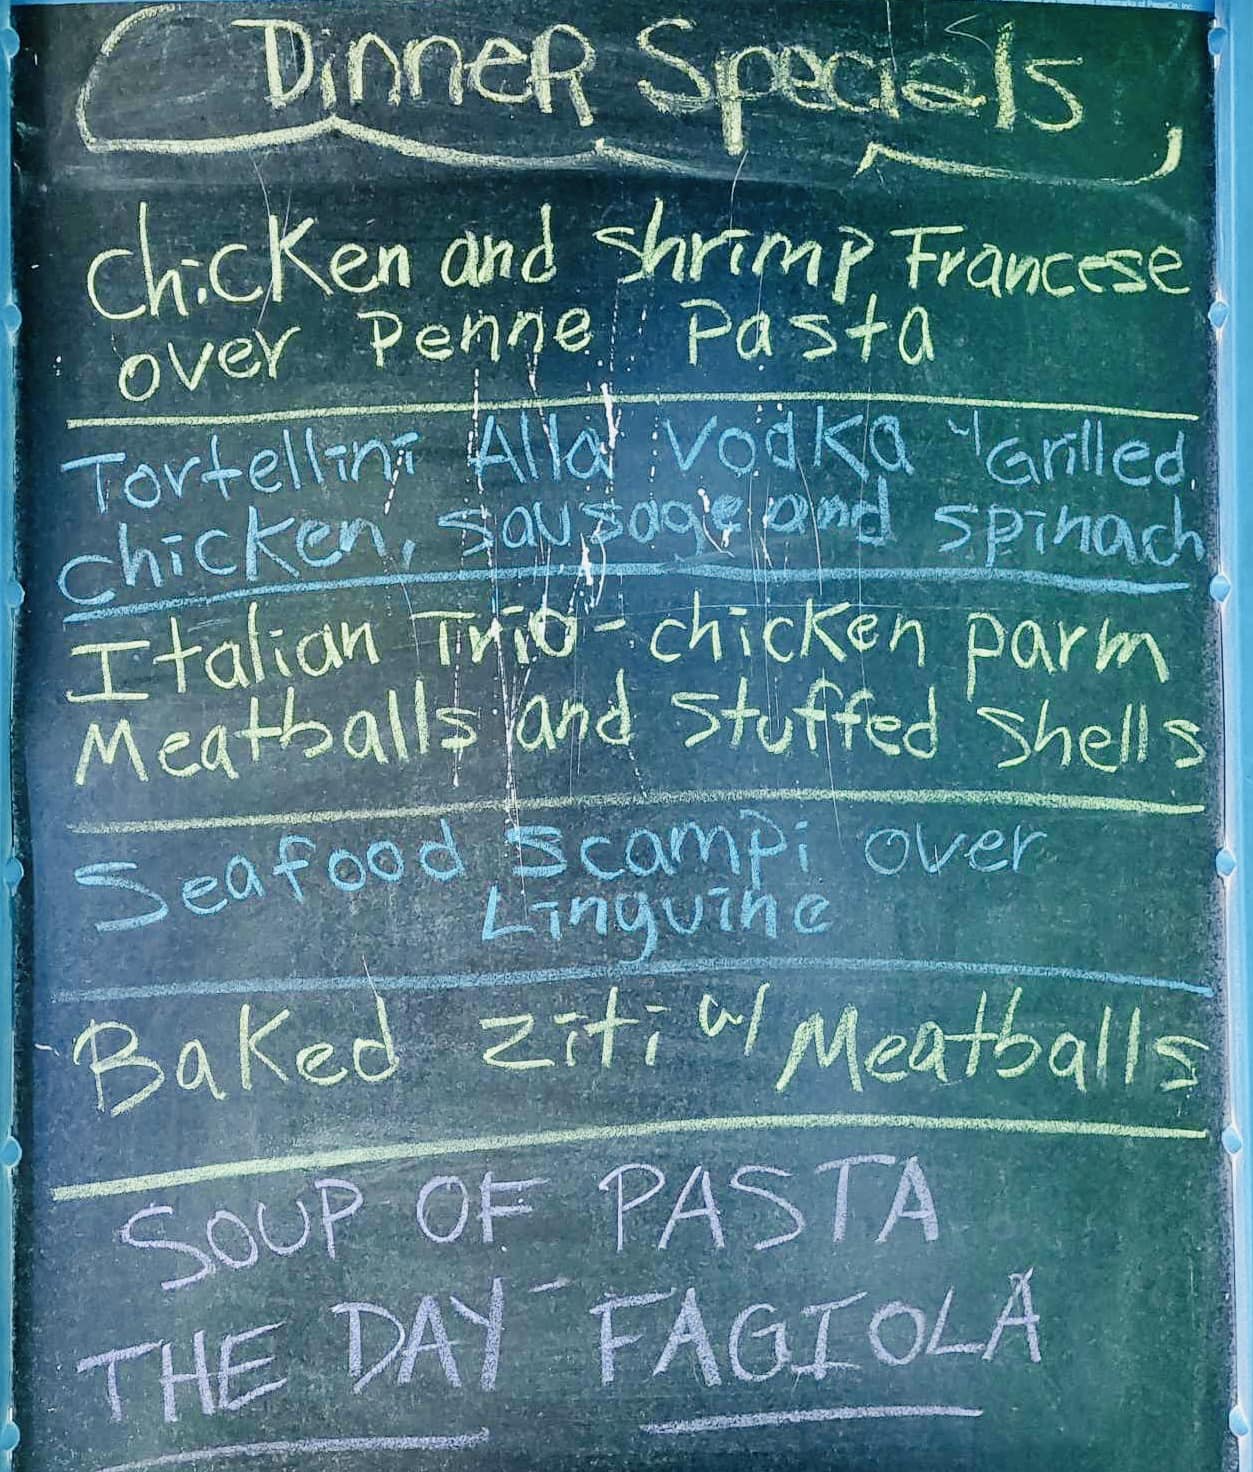 Dinner Specials
Chicken and Shrimp Francese
over Penne Pasta
Tortellini Alla Vodka w/ Grilled
chicken, sausage and spinach
Italian Trio - chicken parm
Meatballs and Stuffed Shells
Seafood Scampi over
Linguine
Baked Ziti w/ Meatballs
SOUP OF PASTA
THE DAY - FAGIOLA